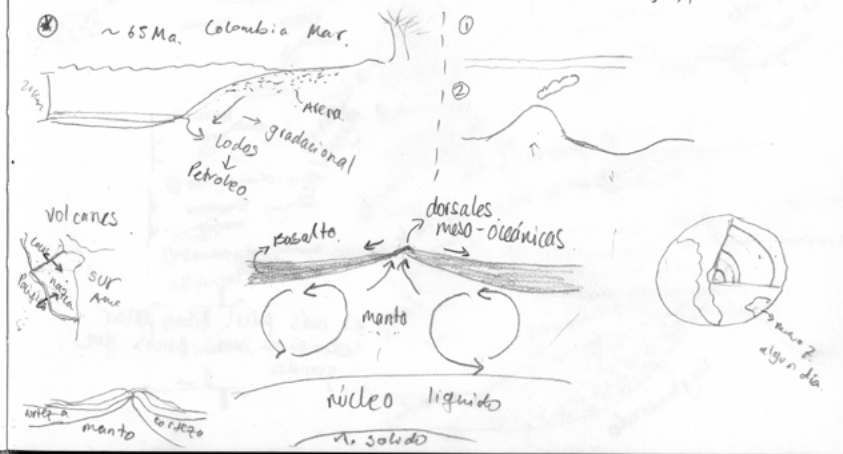 ~ 65 Ma. Colombia Mar.
①
②
2 km
Arena
gradacional
Lodos
Petroleo
volcanes
Cocos
Nazca
Pacífica
sur
Ame
Basalto
dorsales
meso-oceánicas
manto
núcleo líquido
n. solido
corteza
manto
corteza
algun día